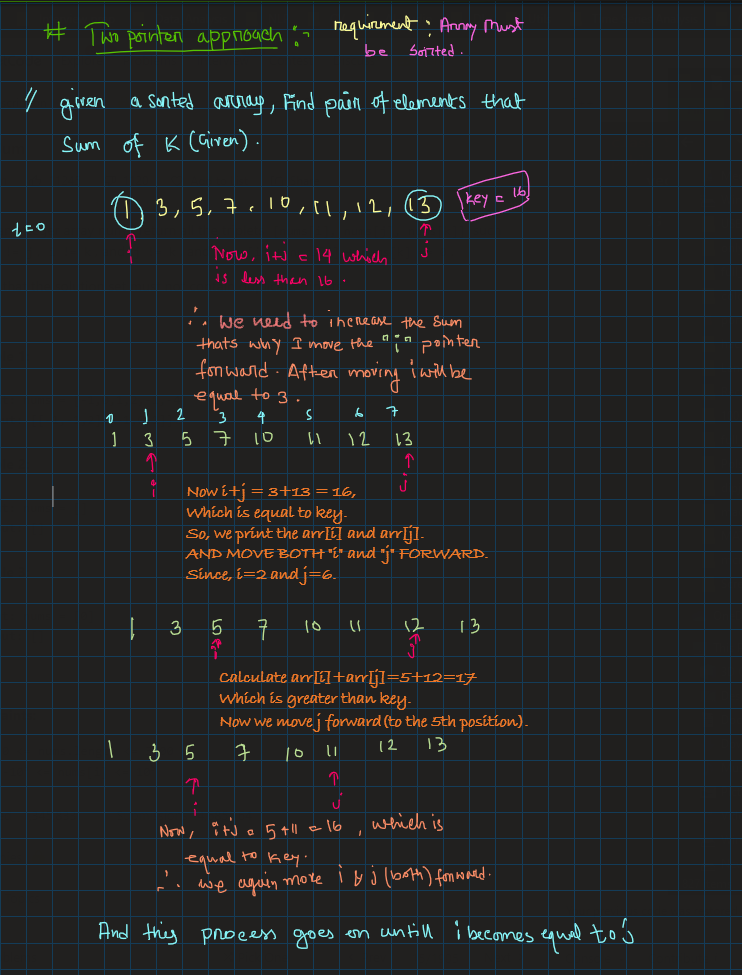 # Two pointer approach :- requirment : Array Must
be sorted.
// given a sorted array, Find pair of elements that
Sum of K (Given).
1 3, 5, 7, 10, 11, 12, 13 key = 16
i=0
i j
Now, i+j = 14 which
is less than 16.
∴ We need to increase the sum
thats why I move the "i" pointer
forward. After moving i will be
equal to 3.
0 1 2 3 4 5 6 7
1 3 5 7 10 11 12 13
i j
Now i+j = 3+13 = 16,
Which is equal to key.
So, we print the arr[i] and arr[j].
AND MOVE BOTH "i" and "j" FORWARD.
Since, i=2 and j=6.
1 3 5 7 10 11 12 13
i j
Calculate arr[i]+arr[j]=5+12=17
Which is greater than key.
Now we move j forward (to the 5th position).
1 3 5 7 10 11 12 13
i j
Now, i+j = 5+11 = 16, which is
equal to key.
∴ we again move i & j (both) forward.
And this process goes on untill i becomes equal to j